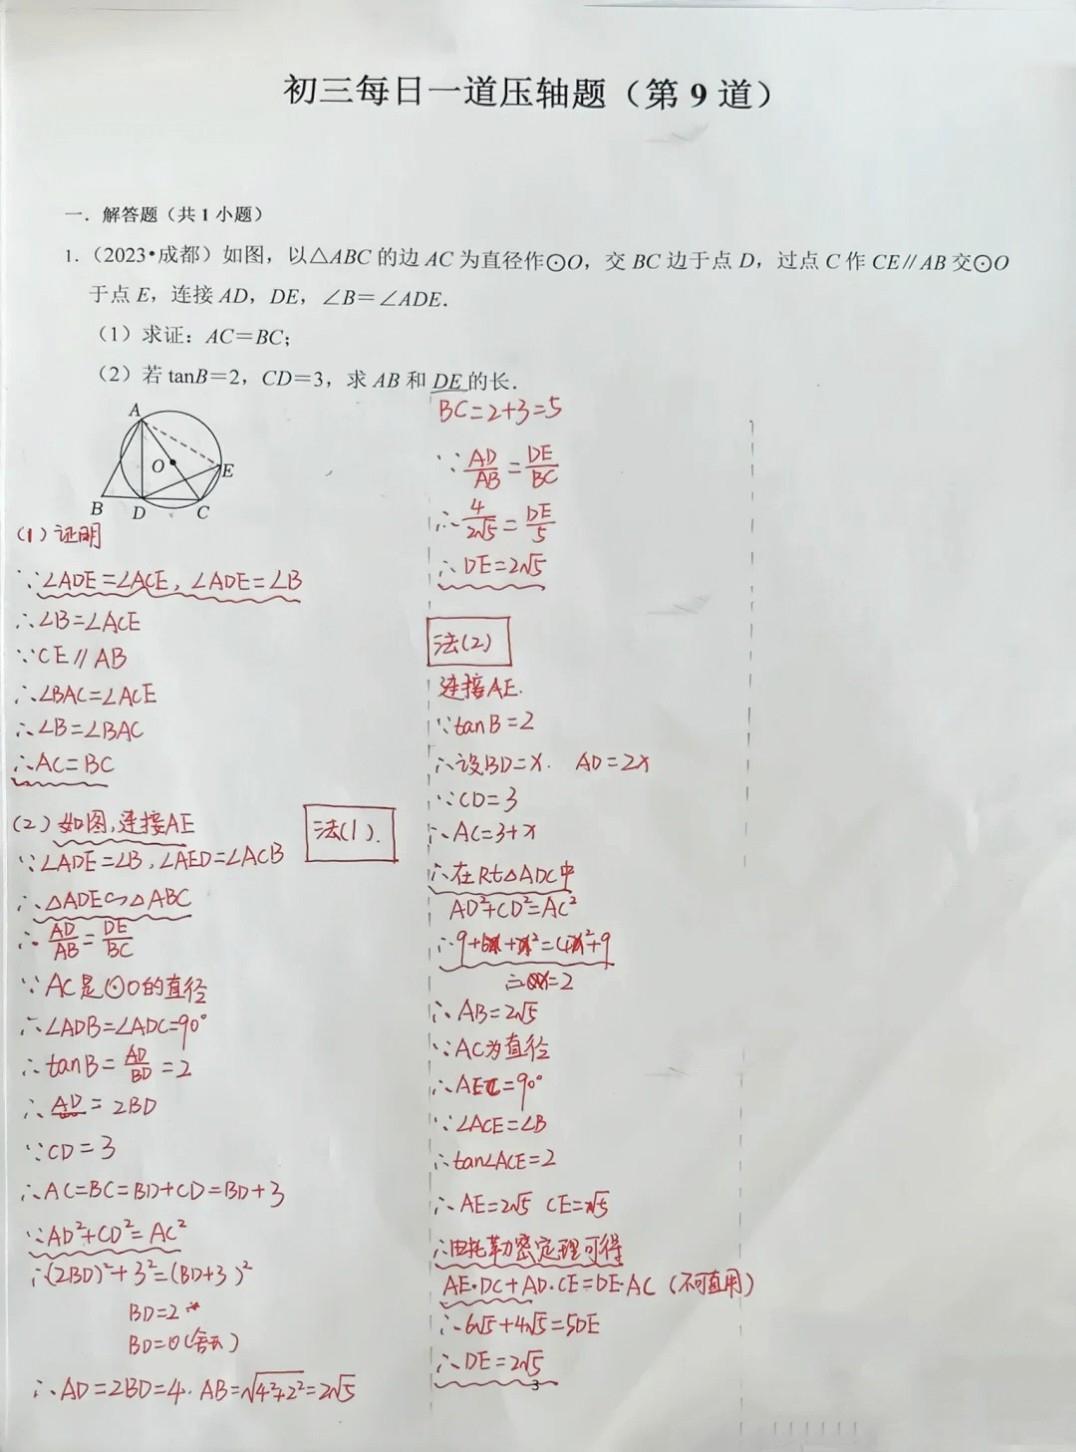 初三每日一道压轴题（第 9 道）
一．解答题（共 1 小题）
1.（2023•成都）如图，以△ABC 的边 AC 为直径作⊙O，交 BC 边于点 D，过点 C 作 CE∥AB 交⊙O
于点 E，连接 AD，DE，∠B＝∠ADE．
（1）求证：AC＝BC；
（2）若 tanB＝2，CD＝3，求 AB 和 DE 的长．
A
O
E
B
D
C
(1) 证明
∵∠ADE=∠ACE, ∠ADE=∠B
∴∠B=∠ACE
∵CE∥AB
∴∠BAC=∠ACE
∴∠B=∠BAC
∴AC=BC
(2) 如图,连接AE
法(1).
∵∠ADE=∠B,∠AED=∠ACB
∴△ADE∽△ABC
∴AD/AB=DE/BC
∵AC是⊙O的直径
∴∠ADB=∠ADC=90°
∴tanB=AD/BD=2
∴AD=2BD
∵CD=3
∴AC=BC=BD+CD=BD+3
∵AD²+CD²=AC²
∴(2BD)²+3²=(BD+3)²
BD=2
BD=0(舍去)
∴AD=2BD=4. AB=√4²+2²=2√5
BC=2+3=5
∵AD/AB=DE/BC
∴4/2√5=DE/5
∴DE=2√5
法(2)
连接AE.
∵tanB=2
∴设BD=x. AD=2x
∵CD=3
∴AC=3+x
∴在Rt△ADC中
AD²+CD²=AC²
∴9+6x+x²=4x²+9
∴x=2
∴AB=2√5
∵AC为直径
∴AEC=90°
∵∠ACE=∠B
∴tan∠ACE=2
∴AE=2√5 CE=√5
∴由托勒密定理可得
AE·DC+AD·CE=DE·AC (不可直用)
∴6√5+4√5=5DE
∴DE=2√5
3